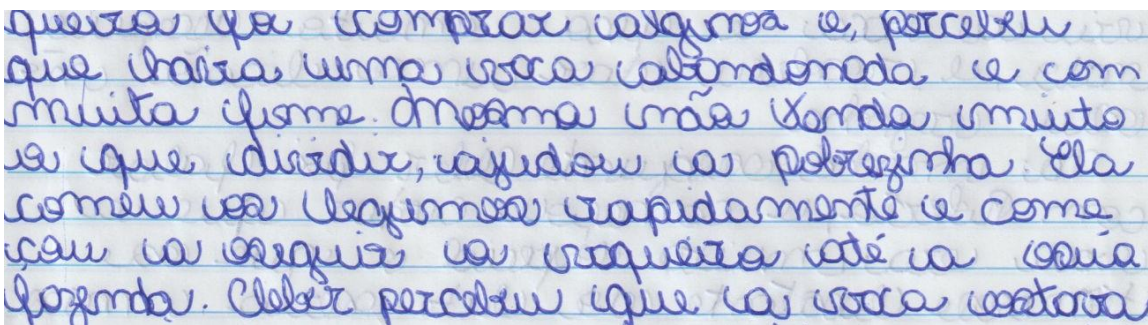 queiro foi comprar algumas e, percebeu
que havia uma vaca abandonada e com
muita fome. Mesmo não tendo muito
o que dividir, ajudou a pobrezinha. Ela
comeu os legumes rapidamente e come
çou a seguir o vaqueiro até a sua
fazenda. Cleber percebeu que a vaca estava